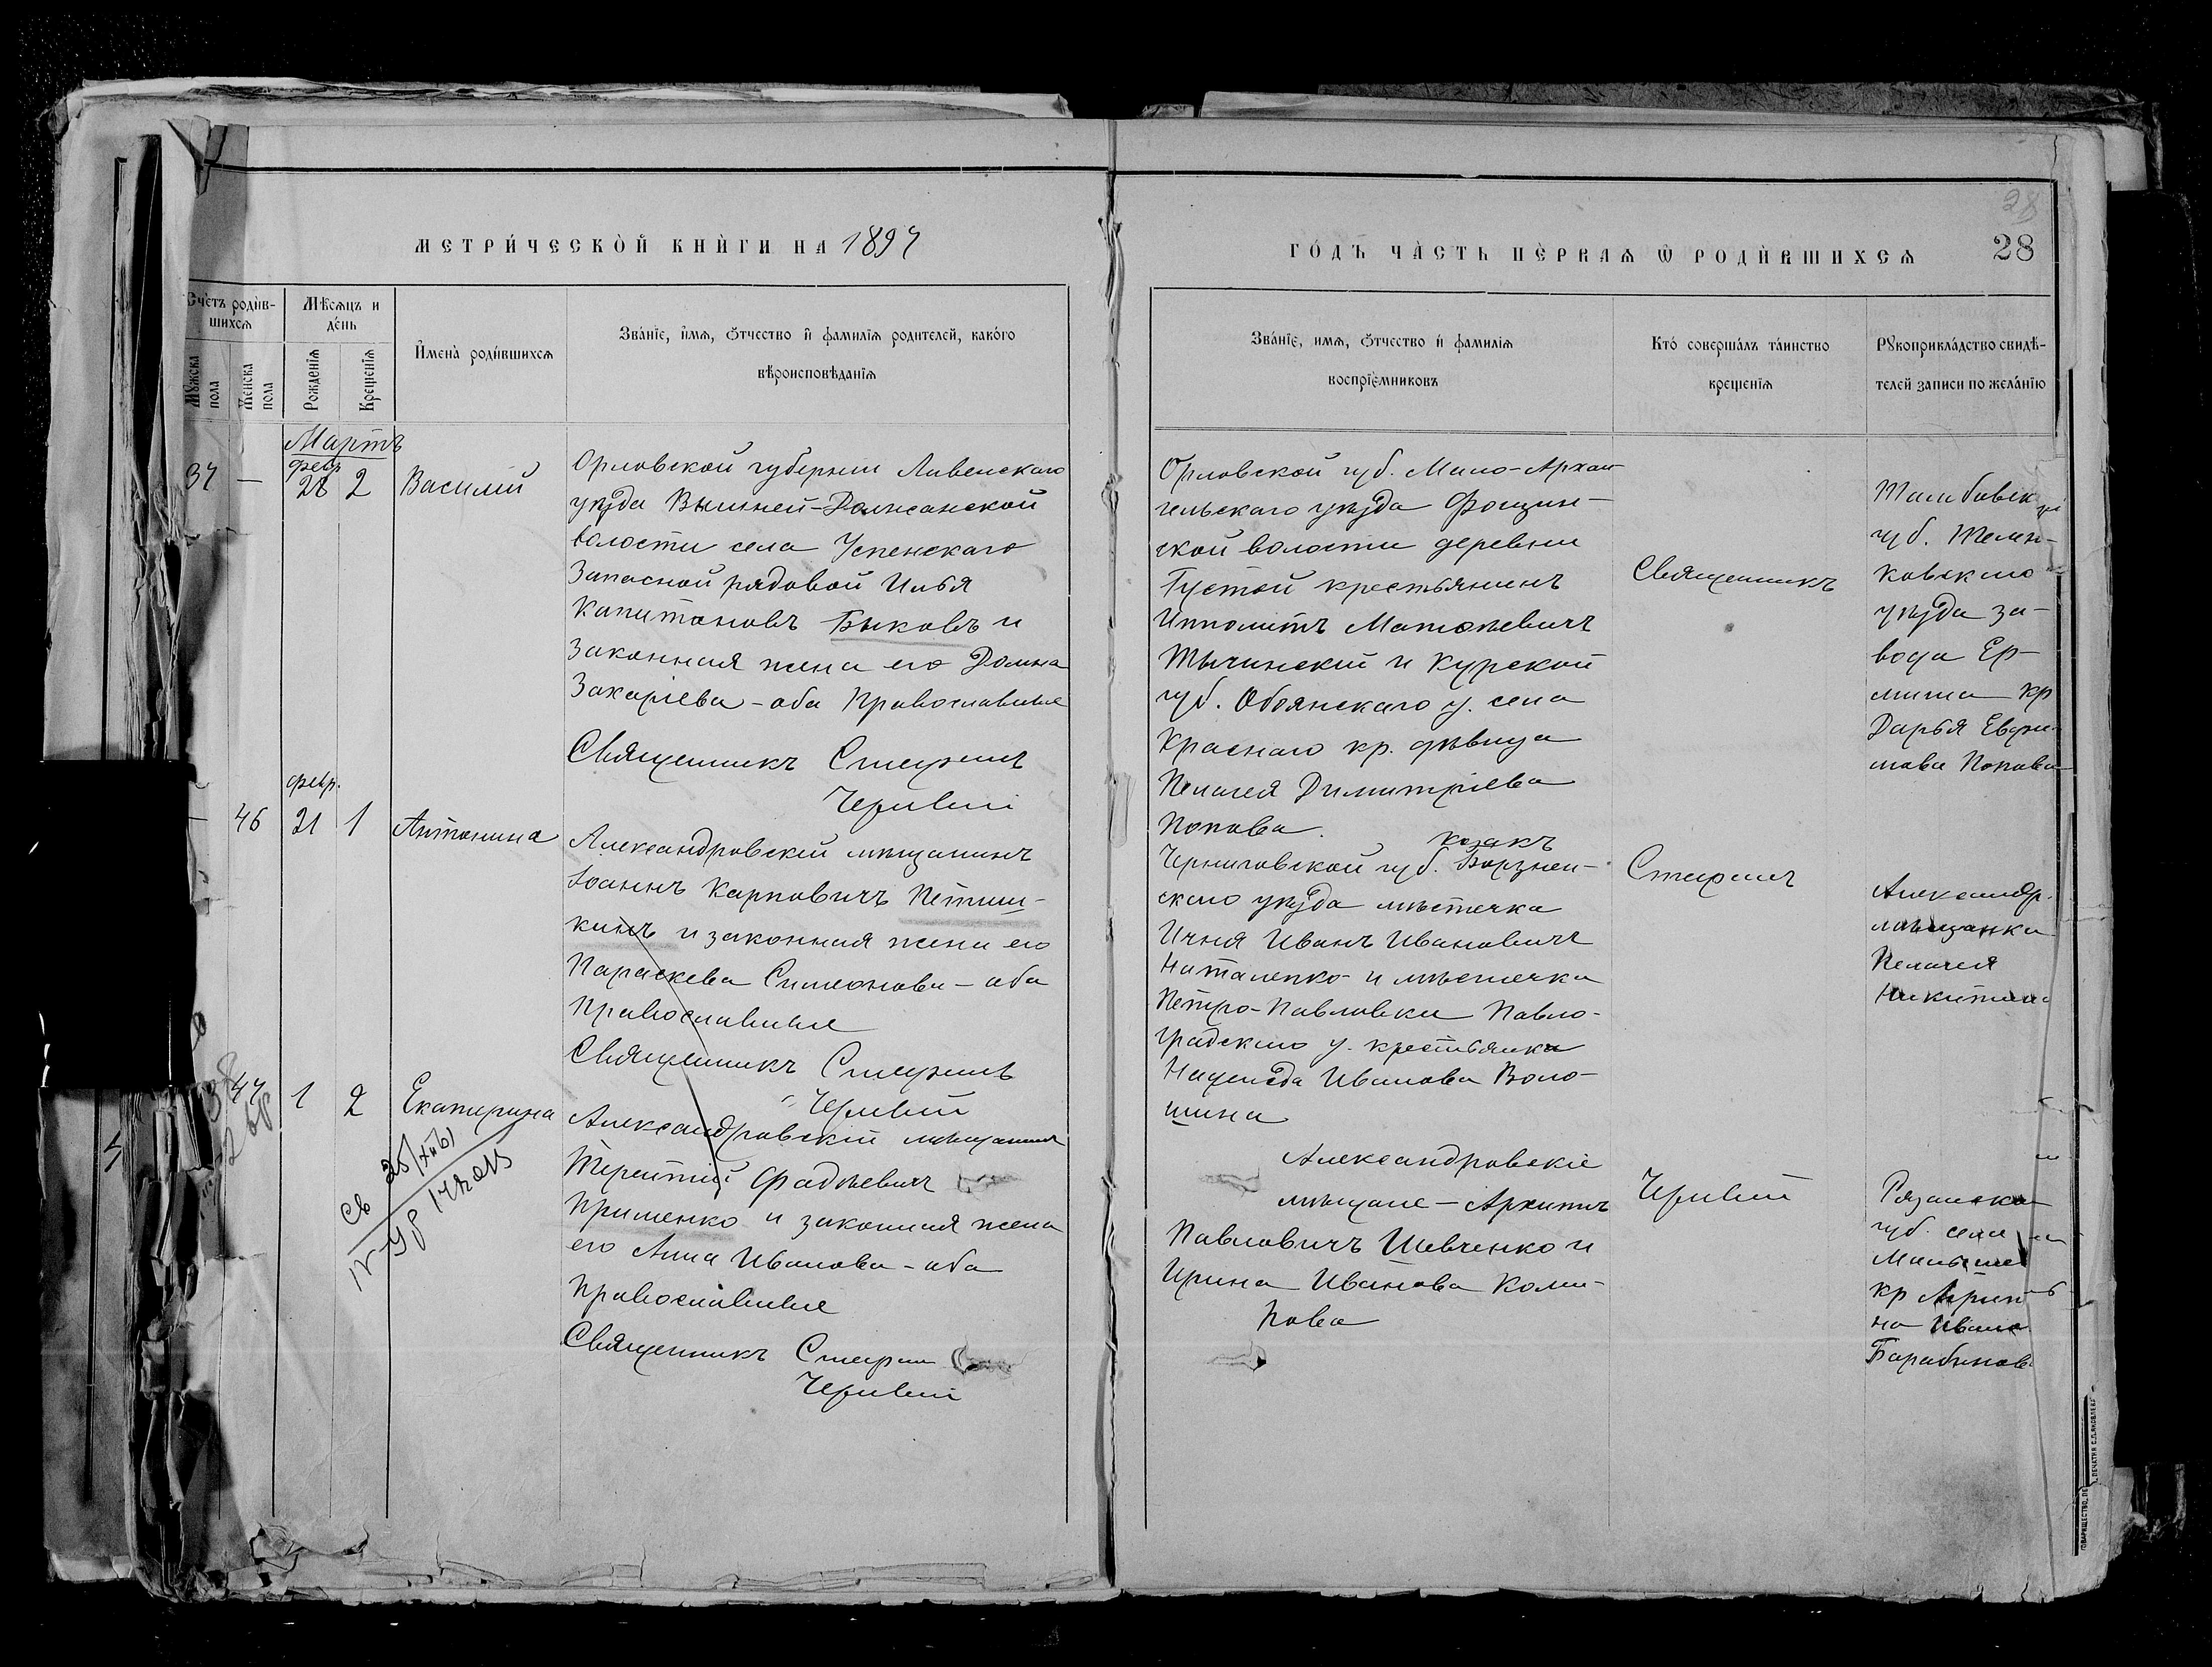 МЕТРИЧЕСКОЙ КНИГИ НА 1897
ГОДЪ ЧАСТЬ ПЕРВАЯ Ѡ РОДИВШИХСЯ
28
28
Счетъ родив-
шихся
Мѣсяцъ и
день
Мꙋжска
пола
Женска
пола
Рожденія
Крещенія
Имена родившихся
Званіе, имя, ѻтчество и фамилія родителей, какого
вѣроисповѣданія
Званіе, имя, ѻтчество и фамилія
воспріемниковъ
Кто совершалъ таинство
крещенія
Рꙋкоприкладство свидѣ-
телей записи по желанію
Мартъ
февр
37 — 28 2 Василій
Орловской губерніи Ливенскаго
уѣзда Вышней-Должанской
волости села Успенскаго
Запасной рядовой Илья
Капитоновъ Быковъ и
Законная жена его Домна
Захаріева - оба Православные
Священникъ Стефанъ
Чернвій
Орловской губ. Мало-Архан-
гельскаго уѣзда Фощин-
ской волости деревни
Густой крестьянинъ
Ипполитъ Матѳѣевичъ
Тычинскій и Курской
губ. Обоянскаго у. села
Краснаго кр. дѣвица
Пелагея Димитріева
Попова.
Священникъ
Тамбовск
губ. Темни-
ковскаго
уѣзда за-
вода Ер-
миша кр
Дарья Евфи-
мова Попова
февр.
— 46 21 1 Антонина
Александровскій мѣщанинъ
Іоаннъ Карповичъ Петиш-
кинъ и законная жена его
Параскева Симеонова - оба
Православные
Священникъ Стефанъ
козакъ
Черниговской губ. Борзнен-
скаго уѣзда мѣстечка
Ичня Иванъ Ивановичъ
Наталенко и мѣстечка
Петро-Павловки Павло-
градскаго у. крестьянка
Надежда Иванова Воло-
шина
Стефанъ
Александр.
мѣщанка
Пелагея
Никитина
47 1 2 Екатерина
Александровскій мѣщанинъ
Терентій Фадѣевичъ
Применко и законная жена
его Анна Иванова - оба
Православные
Священникъ Стефан
Александровскіе
мѣщане - Архипъ
Павловичъ Шевченко и
Ирина Иванова Коли-
нова
Рязанско
губ. села
кр
на Ивано
Барабанов